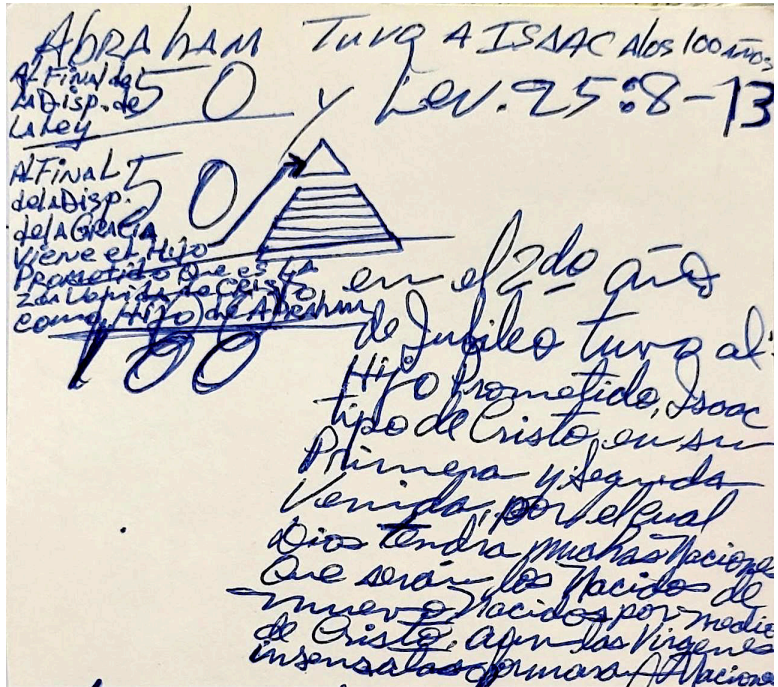 Abraham Tuvo A ISAAC A los 100 años
y Lev. 25:8-13
Al Final de
la Disp. de
La Ley
50
Al Final
de la Disp.
de la Gracia
50
Viene el Hijo
Prometido Que es la
2da Venida de Cristo
como Hijo de Abraham
100
en el 2do año
de Jubileo tuvo al
Hijo Prometido, Isaac
tipo de Cristo, en su
Primera y Segunda
Venida, por el cual
Dios tendra muchas Naciones
Que serán los Nacidos de
nuevo Nacidos por medio
de Cristo, aun las Virgenes
insensatas formaran Naciones